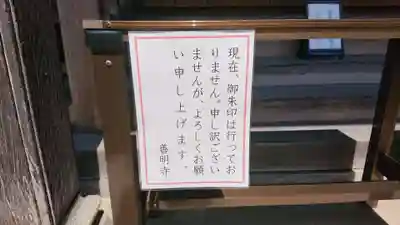 現在、御朱印は行ってお
りません。申し訳ござい
ませんが、よろしくお願
い申し上げます。
善明寺